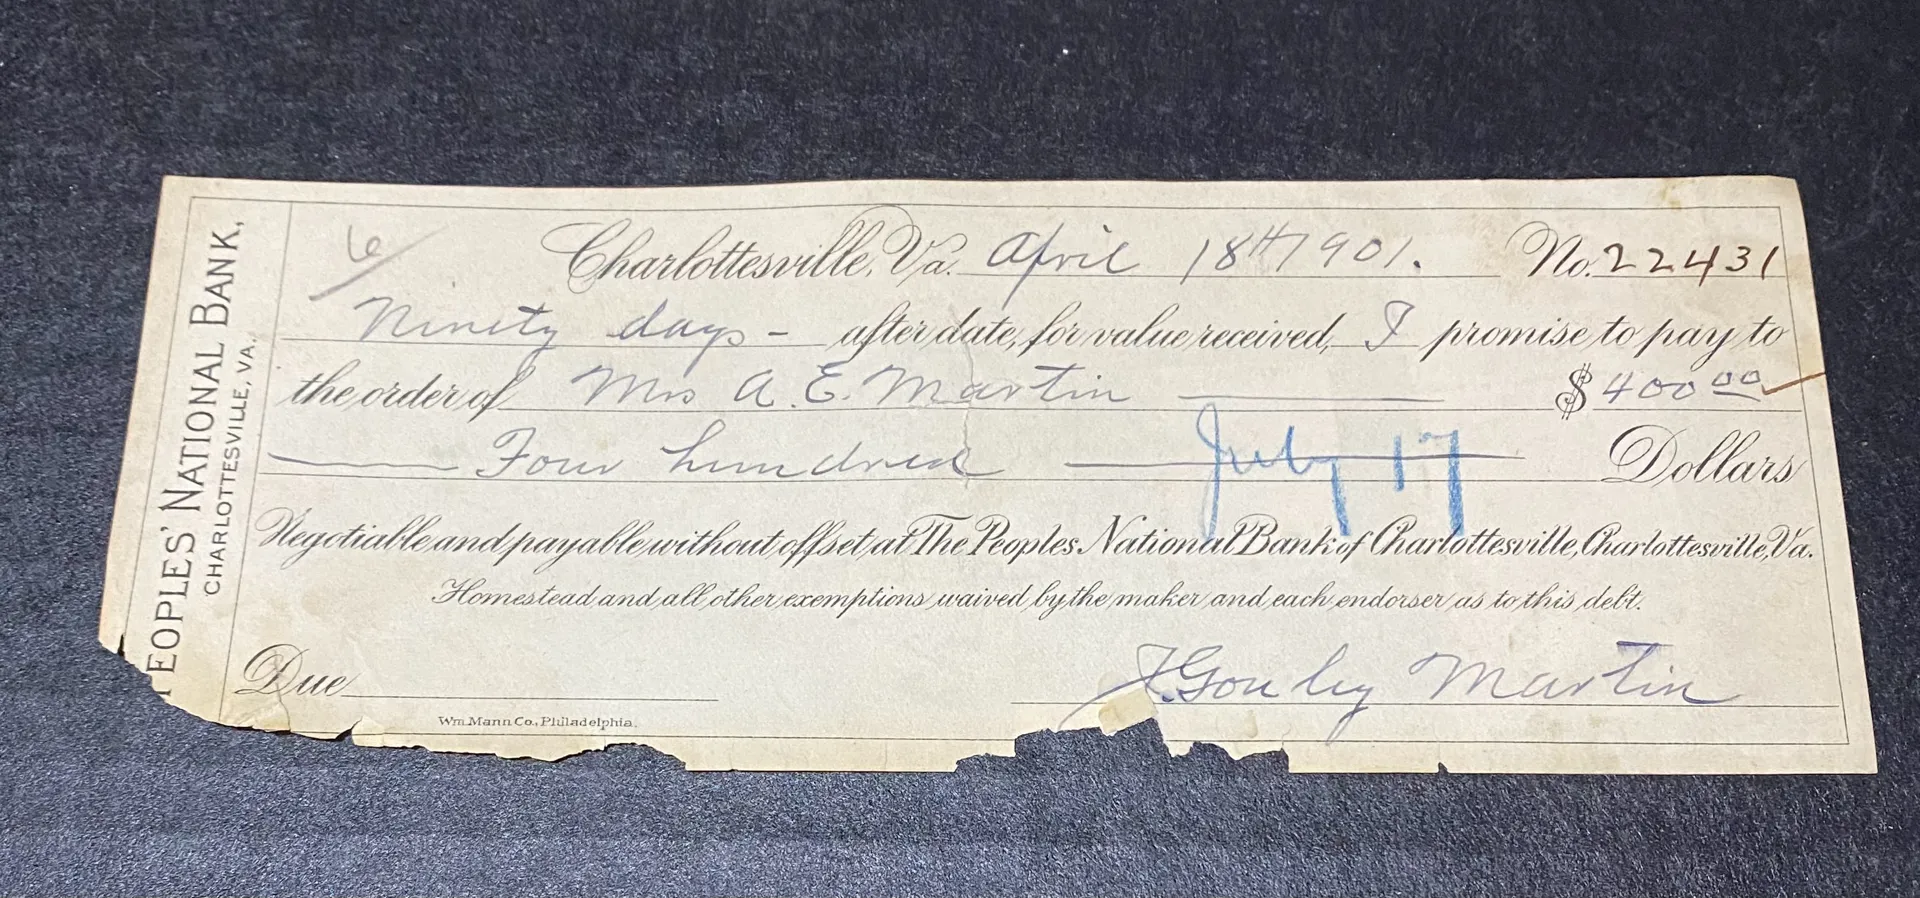 PEOPLES' NATIONAL BANK,
CHARLOTTESVILLE, VA.
6/
Charlottesville, Va. April 18th 1901. No. 22431
Ninety days - after date, for value received, I promise to pay to
the order of Mrs A. E. Martin $400 00
Four hundred Dollars
July 17
Negotiable and payable without offset at The Peoples National Bank of Charlottesville, Charlottesville, Va.
Homestead and all other exemptions waived by the maker and each endorser as to this debt.
Due
Martin
Wm. Mann Co., Philadelphia.